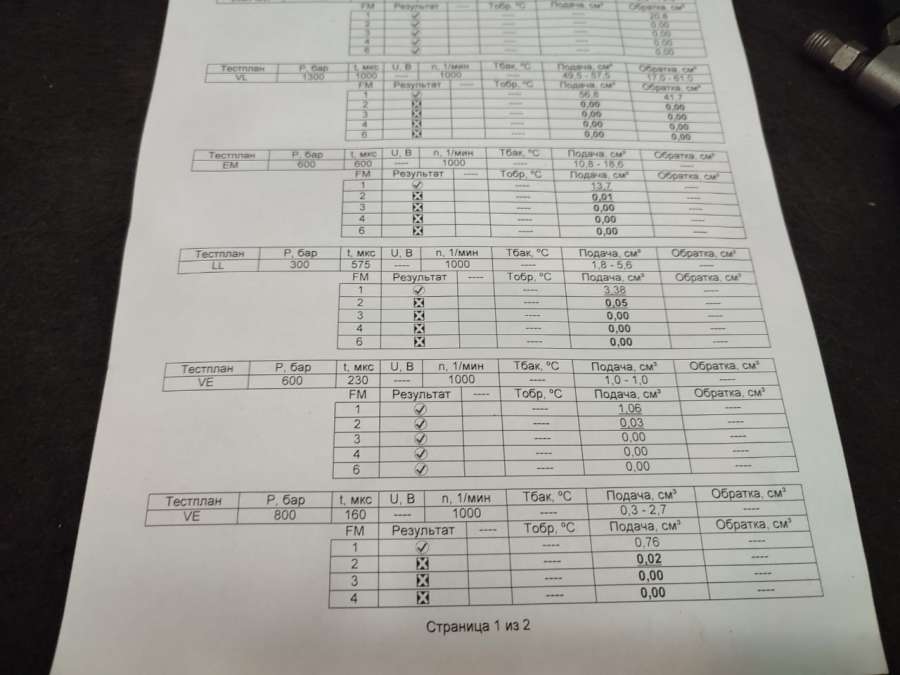 FM Результат ---- Тобр, ºС Подача, см³ Обратка, см³
1 ---- ---- 20,8
2 ---- ---- 0,00
3 ---- ---- 0,00
4 ---- ---- 0,00
6 ---- ---- 0,00
Тестплан Р, бар t, мкс U, В n, 1/мин Тбак, ºС Подача, см³ Обратка, см³
VL 1300 1000 ---- 1000 ---- 49,5 - 57,5 17,0 - 61,0
FM Результат ---- Тобр, ºС Подача, см³ Обратка, см³
1 ---- 56,8 41,7
2 ---- 0,00 0,00
3 ---- 0,00 0,00
4 ---- 0,00 0,00
6 ---- 0,00 0,00
Тестплан Р, бар t, мкс U, В n, 1/мин Тбак, ºС Подача, см³ Обратка, см³
EM 600 600 ---- 1000 ---- 10,8 - 18,6 ----
FM Результат ---- Тобр, ºС Подача, см³ Обратка, см³
1 ---- 13,7 ----
2 ---- 0,01 ----
3 ---- 0,00 ----
4 ---- 0,00 ----
6 ---- 0,00 ----
Тестплан Р, бар t, мкс U, В n, 1/мин Тбак, ºС Подача, см³ Обратка, см³
LL 300 575 ---- 1000 ---- 1,8 - 5,6 ----
FM Результат ---- Тобр, ºС Подача, см³ Обратка, см³
1 ---- 3,38 ----
2 ---- 0,05 ----
3 ---- 0,00 ----
4 ---- 0,00 ----
6 ---- 0,00 ----
Тестплан Р, бар t, мкс U, В n, 1/мин Тбак, ºС Подача, см³ Обратка, см³
VE 600 230 ---- 1000 ---- 1,0 - 1,0 ----
FM Результат ---- Тобр, ºС Подача, см³ Обратка, см³
1 ---- 1,06 ----
2 ---- 0,03 ----
3 ---- 0,00 ----
4 ---- 0,00 ----
6 ---- 0,00 ----
Тестплан Р, бар t, мкс U, В n, 1/мин Тбак, ºС Подача, см³ Обратка, см³
VE 800 160 ---- 1000 ---- 0,3 - 2,7 ----
FM Результат ---- Тобр, ºС Подача, см³ Обратка, см³
1 ---- 0,76 ----
2 ---- 0,02 ----
3 ---- 0,00 ----
4 ---- 0,00 ----
Страница 1 из 2